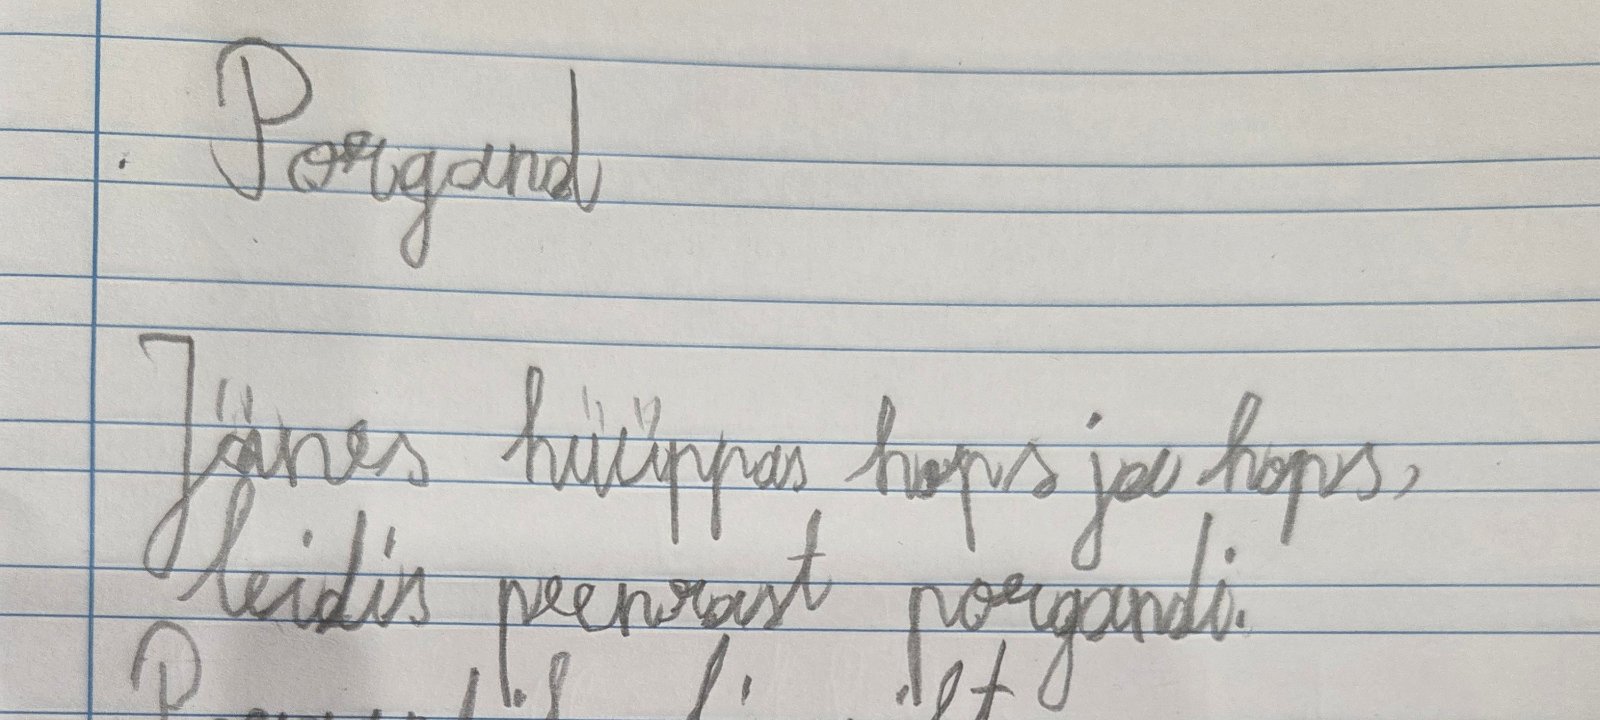 Porgand
Jänes hüüppas hops ja hops,
leidis peenrast porgandi.